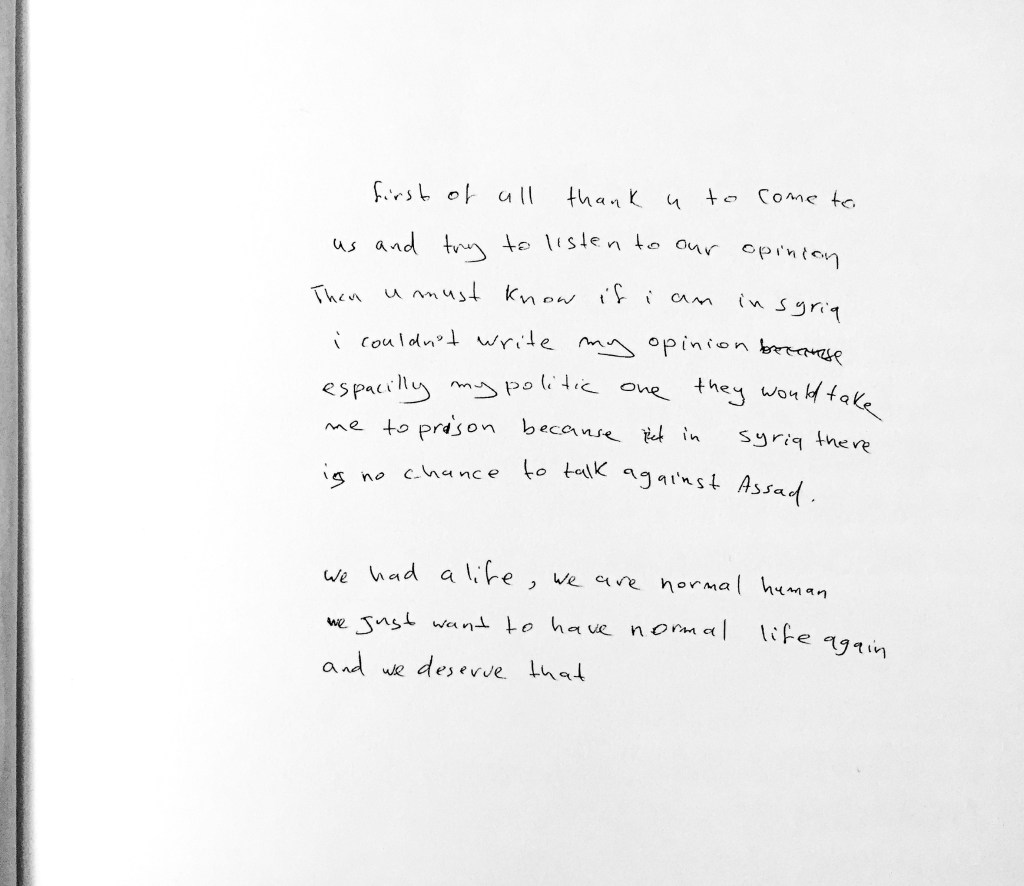 first of all thank u to come to
us and try to listen to our opinion
Then u must know if i am in syria
i couldn't write my opinion
espacilly my politic one they would take
me to prison because in syria there
is no chance to talk against Assad.
we had a life, we are normal human
we just want to have normal life again
and we deserve that